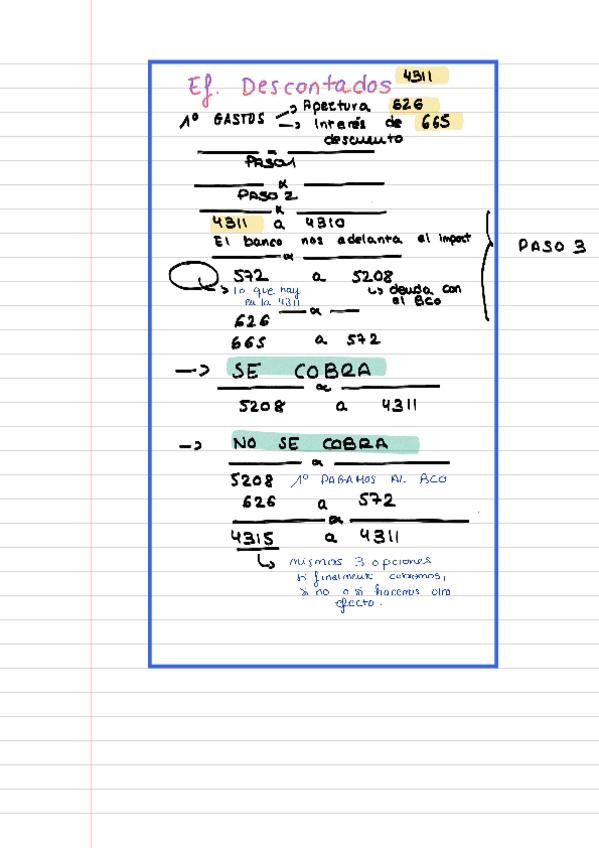 Ef. Descontados 4311
1º GASTOS -> Apertura 626
-> Interés de 665
descuento
PASO 1
x
PASO 2
x
4311 a 4310
El banco nos adelanta el import
x
PASO 3
572 a 5208
↳ lo que hay en la 4311
↳ deuda con el BCO
x
626
665 a 572
-> SE COBRA
x
5208 a 4311
-> NO SE COBRA
x
5208 1º PAGAMOS AL BCO
626 a 572
x
4315 a 4311
↳ mismas 3 opciones
si finalmente cobramos,
si no o si hacemos otro
efecto.